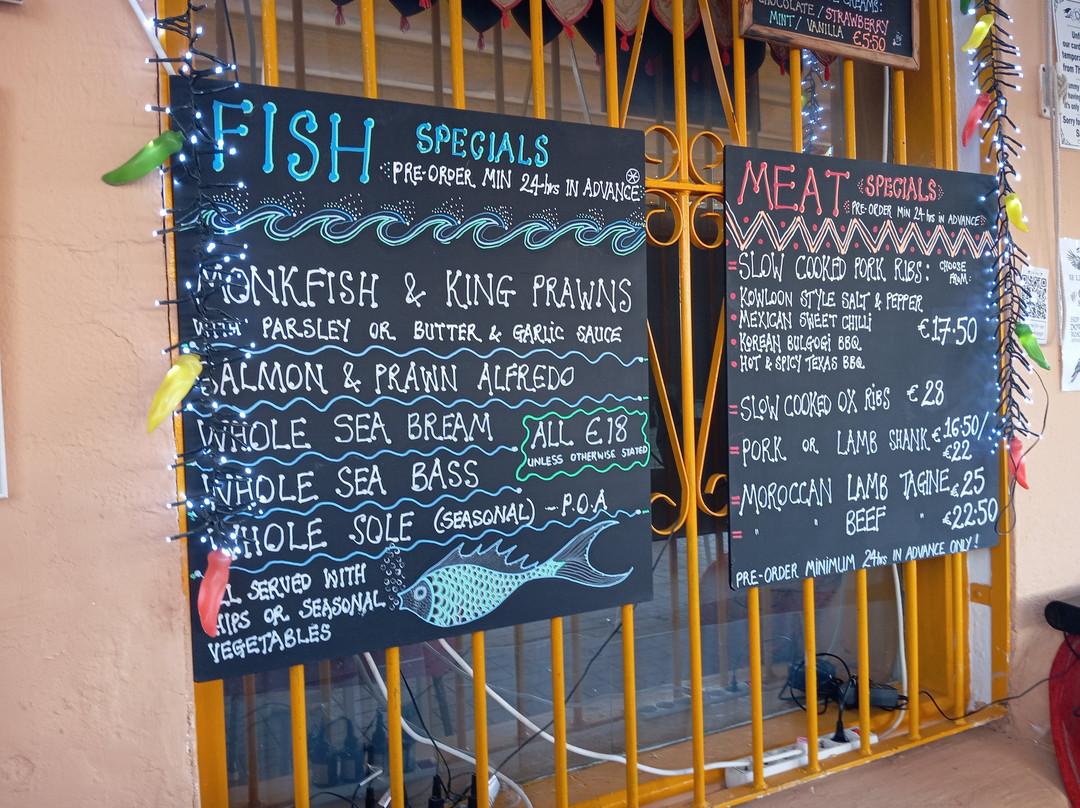 FISH SPECIALS
PRE-ORDER MIN 24-hrs IN ADVANCE
MONKFISH & KING PRAWNS
WITH PARSLEY OR BUTTER & GARLIC SAUCE
SALMON & PRAWN ALFREDO
WHOLE SEA BREAM
WHOLE SEA BASS
ALL €18
UNLESS OTHERWISE STATED
WHOLE SOLE (SEASONAL) - P.O.A
ALL SERVED WITH
CHIPS OR SEASONAL
VEGETABLES
CHOCOLATE / STRAWBERRY
MINT / VANILLA €5.50
MEAT SPECIALS
PRE-ORDER MIN 24 hrs IN ADVANCE
= SLOW COOKED PORK RIBS: CHOOSE FROM:
• KOWLOON STYLE SALT & PEPPER
• MEXICAN SWEET CHILLI
€17.50
• KOREAN BULGOGI BBQ
• HOT & SPICY TEXAS BBQ
= SLOW COOKED OX RIBS €28
= PORK OR LAMB SHANK €16.50/€22
= MOROCCAN LAMB TAGINE €25
= " " BEEF " €22.50
PRE-ORDER MINIMUM 24hrs IN ADVANCE ONLY!